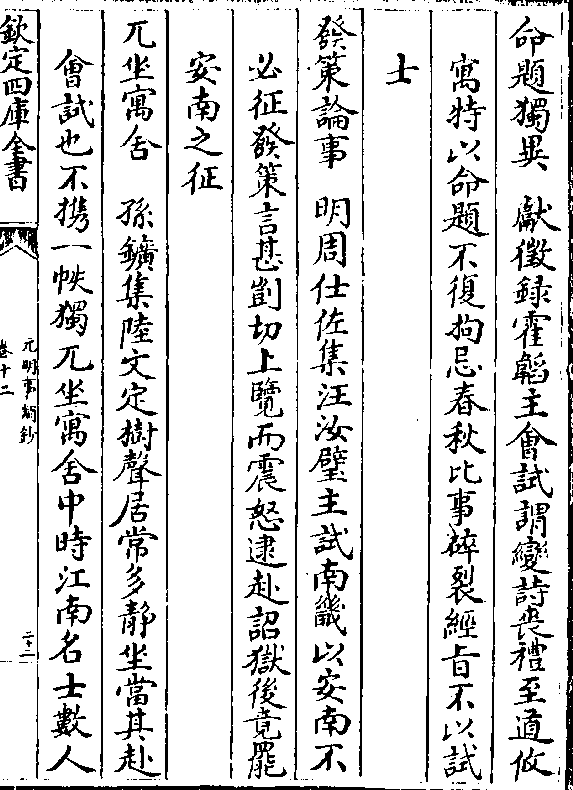 命題獨異　獻徵録霍韜主會試謂變詩喪禮至道攸
寓特以命題不復拘忌春秋比事碎裂經旨不以試
士
發策論事　明周仕佐集汪汝璧主試南畿以安南不
必征發策言甚剴切上覽而震怒逮赴詔獄後竟罷
安南之征
兀坐寓舍　孫鑛集陸文定樹聲居常多靜坐當其赴
會試也不攜一帙獨兀坐寓舍中時江南名士數人
欽定四庫全書
元明事類鈔
卷十二
二十二